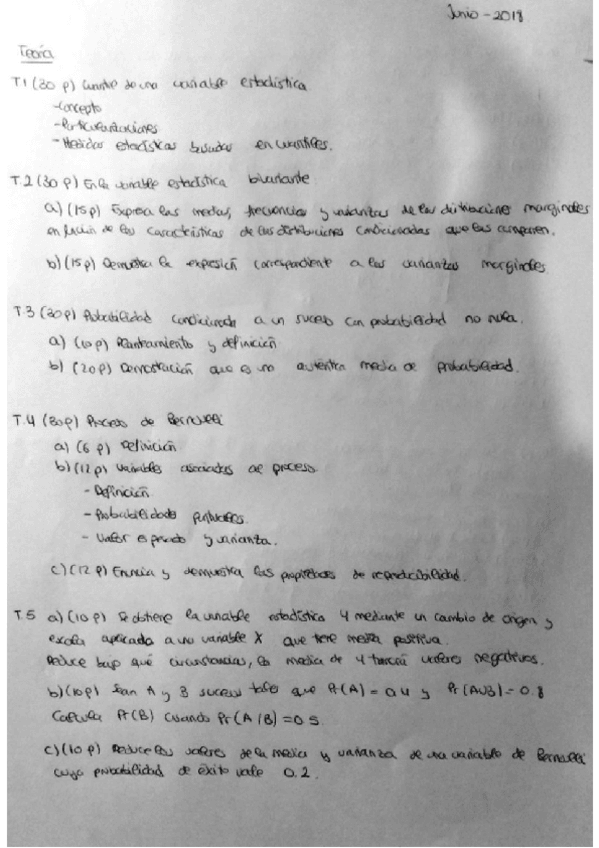 Junio - 2018
Teoría
T.1 (30 p) Cuantil de una variable estadística
- Concepto
- Particularizaciones
- Medidas estadísticas basadas en cuantiles.
T.2 (30 p) En la variable estadística bivariante
a) (15 p) Expresa las medias, frecuencias y varianzas de las distribuciones marginales
en función de las características de las distribuciones condicionadas que las componen.
b) (15 p) Demuestra la expresión correspondiente a las varianzas marginales
T.3 (30 p) Probabilidad condicionada a un suceso con probabilidad no nula.
a) (10 p) Planteamiento y definición
b) (20 p) Demostración que es una auténtica medida de probabilidad.
T.4 (30 p) Proceso de Bernoulli
a) (6 p) Definición
b) (12 p) Variables asociadas al proceso.
- Definición
- Probabilidades puntuales.
- Valor esperado y varianza.
c) (12 p) Enuncia y demuestra las propiedades de reproducibilidad.
T.5 a) (10 p) Se obtiene la variable estadística Y mediante un cambio de origen y
escala aplicada a una variable X que tiene media positiva.
Deduce bajo qué circunstancias, la media de Y tomará valores negativos.
b) (10 p) Sean A y B sucesos tales que Pr(A) = 0.4 y Pr(AUB) = 0.8
Calcula Pr(B) cuando Pr(A/B) = 0.5
c) (10 p) Deduce los valores de la media y varianza de una variable de Bernoulli
cuya probabilidad de éxito vale 0.2.